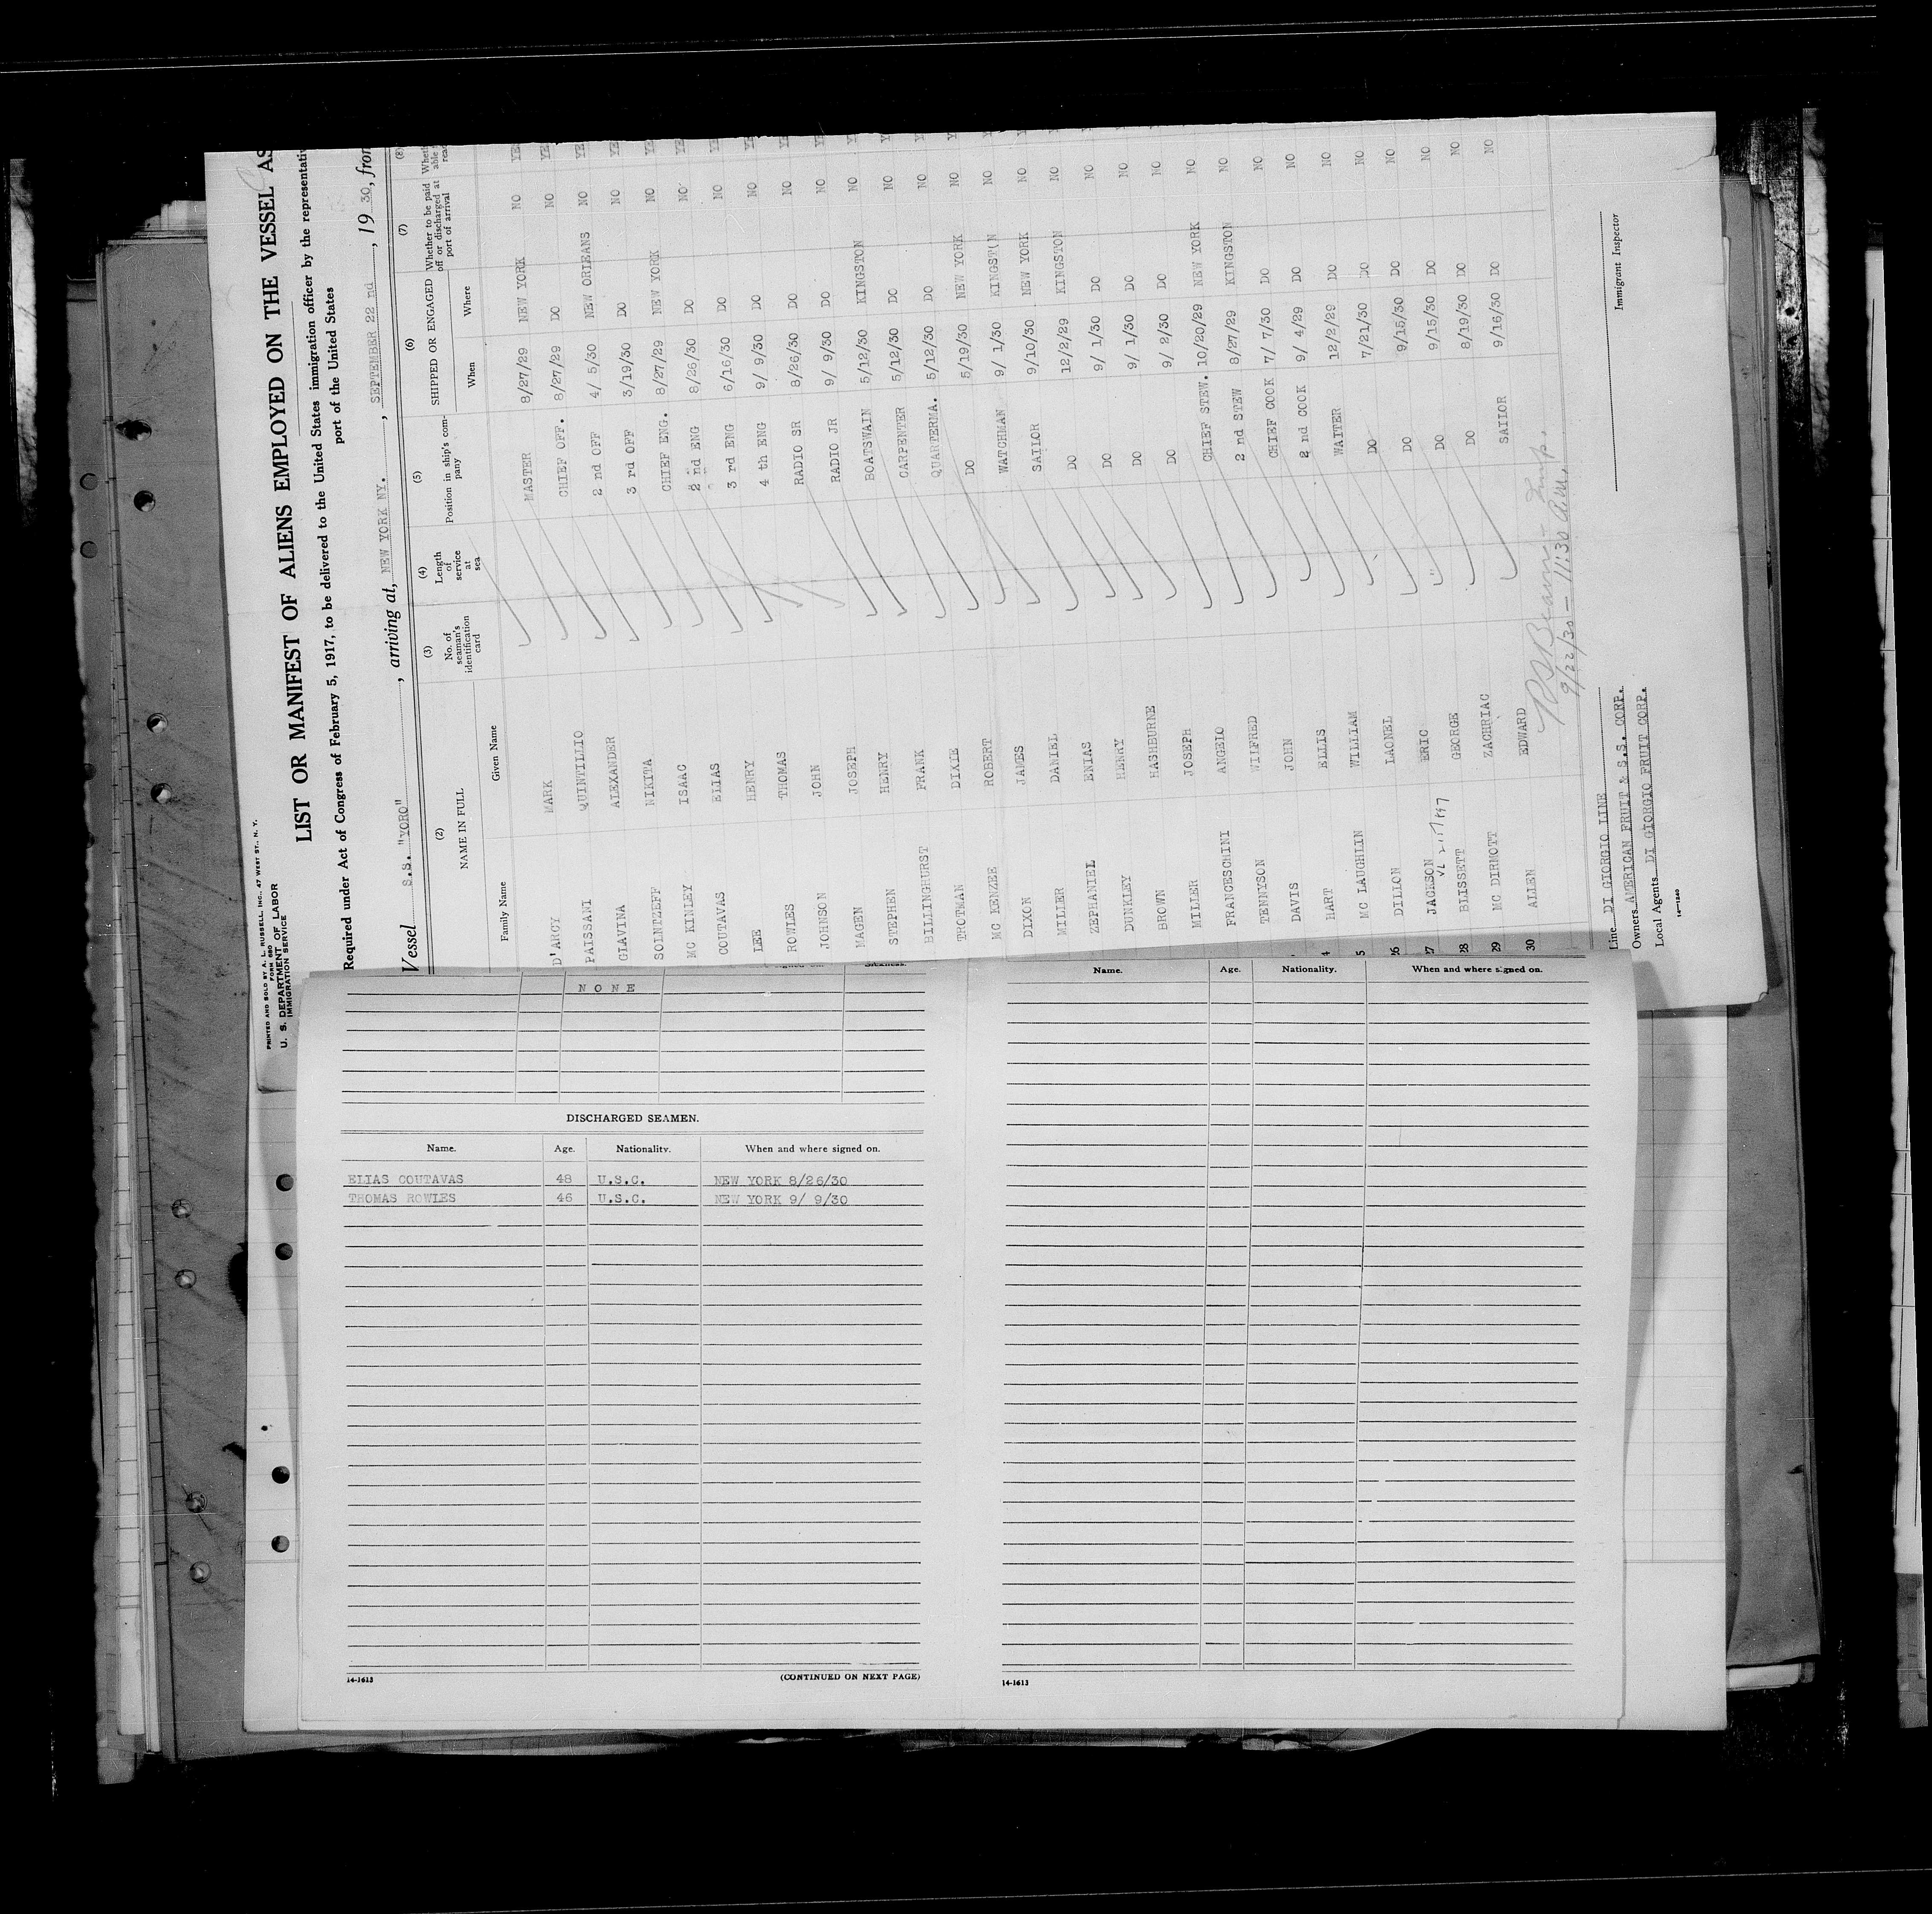 PRINTED AND SOLD BY A. L. RUSSELL, INC., 47 WEST ST., N. Y.
FORM 680
U. S. DEPARTMENT OF LABOR
IMMIGRATION SERVICE
LIST OR MANIFEST OF ALIENS EMPLOYED ON THE VESSEL AS
Required under Act of Congress of February 5, 1917, to be delivered to the United States immigration officer by the representativ
port of the United States
Vessel S.S. "YORO", arriving at, NEW YORK NY., SEPTEMBER 22 nd, 19 30, from
(2) (3) (4) (5) (6) (7) (8)
NAME IN FULL No. of seaman's identification card Length of service at sea Position in ship's company SHIPPED OR ENGAGED Whether to be paid off or discharged at port of arrival
Family Name Given Name When Where
D'ARCY MARK MASTER 8/27/29 NEW YORK NO YES
PAISSANI QUINTILLIO CHIEF OFF. 8/27/29 DO NO YE
GIAVINA ALEXANDER 2 nd OFF 4/ 5/30 NEW ORLEANS NO YE
SOLNTZEFF NIKITA 3 rd OFF 3/19/30 DO NO YE
MC KINLEY ISAAC CHIEF ENG. 8/27/29 NEW YORK NO YE
COUTAVAS ELIAS 2 nd ENG 8/26/30 DO NO YE
LEE HENRY 3 rd ENG 6/16/30 DO NO YE
ROWLES THOMAS 4 th ENG 9/ 9/30 DO NO YE
JOHNSON JOHN RADIO SR 8/26/30 DO NO YE
MAGEN JOSEPH RADIO JR 9/ 9/30 DO NO YE
STEPHEN HENRY BOATSWAIN 5/12/30 KINGSTON NO
BILLINGHURST FRANK CARPENTER 5/12/30 DO NO
TROTMAN DIXIE QUARTERMA. 5/12/30 DO NO
MC KENZEE ROBERT DO 5/19/30 NEW YORK NO
DIXON JAMES WATCHMAN 9/ 1/30 KINGSTON NO
MILLER DANIEL SAILOR 9/10/30 NEW YORK NO
ZEPHANIEL ENIAS DO 12/2/29 KINGSTON NO
DUNKLEY HENRY DO 9/ 1/30 DO NO
BROWN HASHBURNE DO 9/ 1/30 DO NO
MILLER JOSEPH DO 9/ 2/30 DO NO
FRANCESCHINI ANGELO CHIEF STEW. 10/20/29 NEW YORK NO
TENNYSON WILFRED 2 nd STEW 8/27/29 KINGSTON NO
DAVIS JOHN CHIEF COOK 7/ 7/30 DO NO
4 HART ELLIS 2 nd COOK 9/ 4/29 DO NO
5 MC LAUGHLIN WILLIAM WAITER 12/2/29 DO NO
26 DILLON LAONEL DO 7/21/30 DO NO
27 JACKSON ERIC DO 9/15/30 DO NO
28 BLISSETT GEORGE DO 9/15/30 DO NO
29 MC DIRMOTT ZACHRIAC DO 8/19/30 DO NO
30 ALLEN EDWARD SAILOR 9/16/30 DO NO
9/22/30 - 11:30 a.m.
Line DI GIORGIO LINE
Owners AMERICAN FRUIT & S.S. CORP.
Local Agents DI GIORGIO FRUIT CORP.
Immigrant Inspector
14-1240
NONE
DISCHARGED SEAMEN.
Name. Age. Nationality. When and where signed on.
ELIAS COUTAVAS 48 U.S.C. NEW YORK 8/26/30
THOMAS ROWLES 46 U.S.C. NEW YORK 9/ 9/30
14-1613 (CONTINUED ON NEXT PAGE)
Name. Age. Nationality. When and where signed on.
14-1613